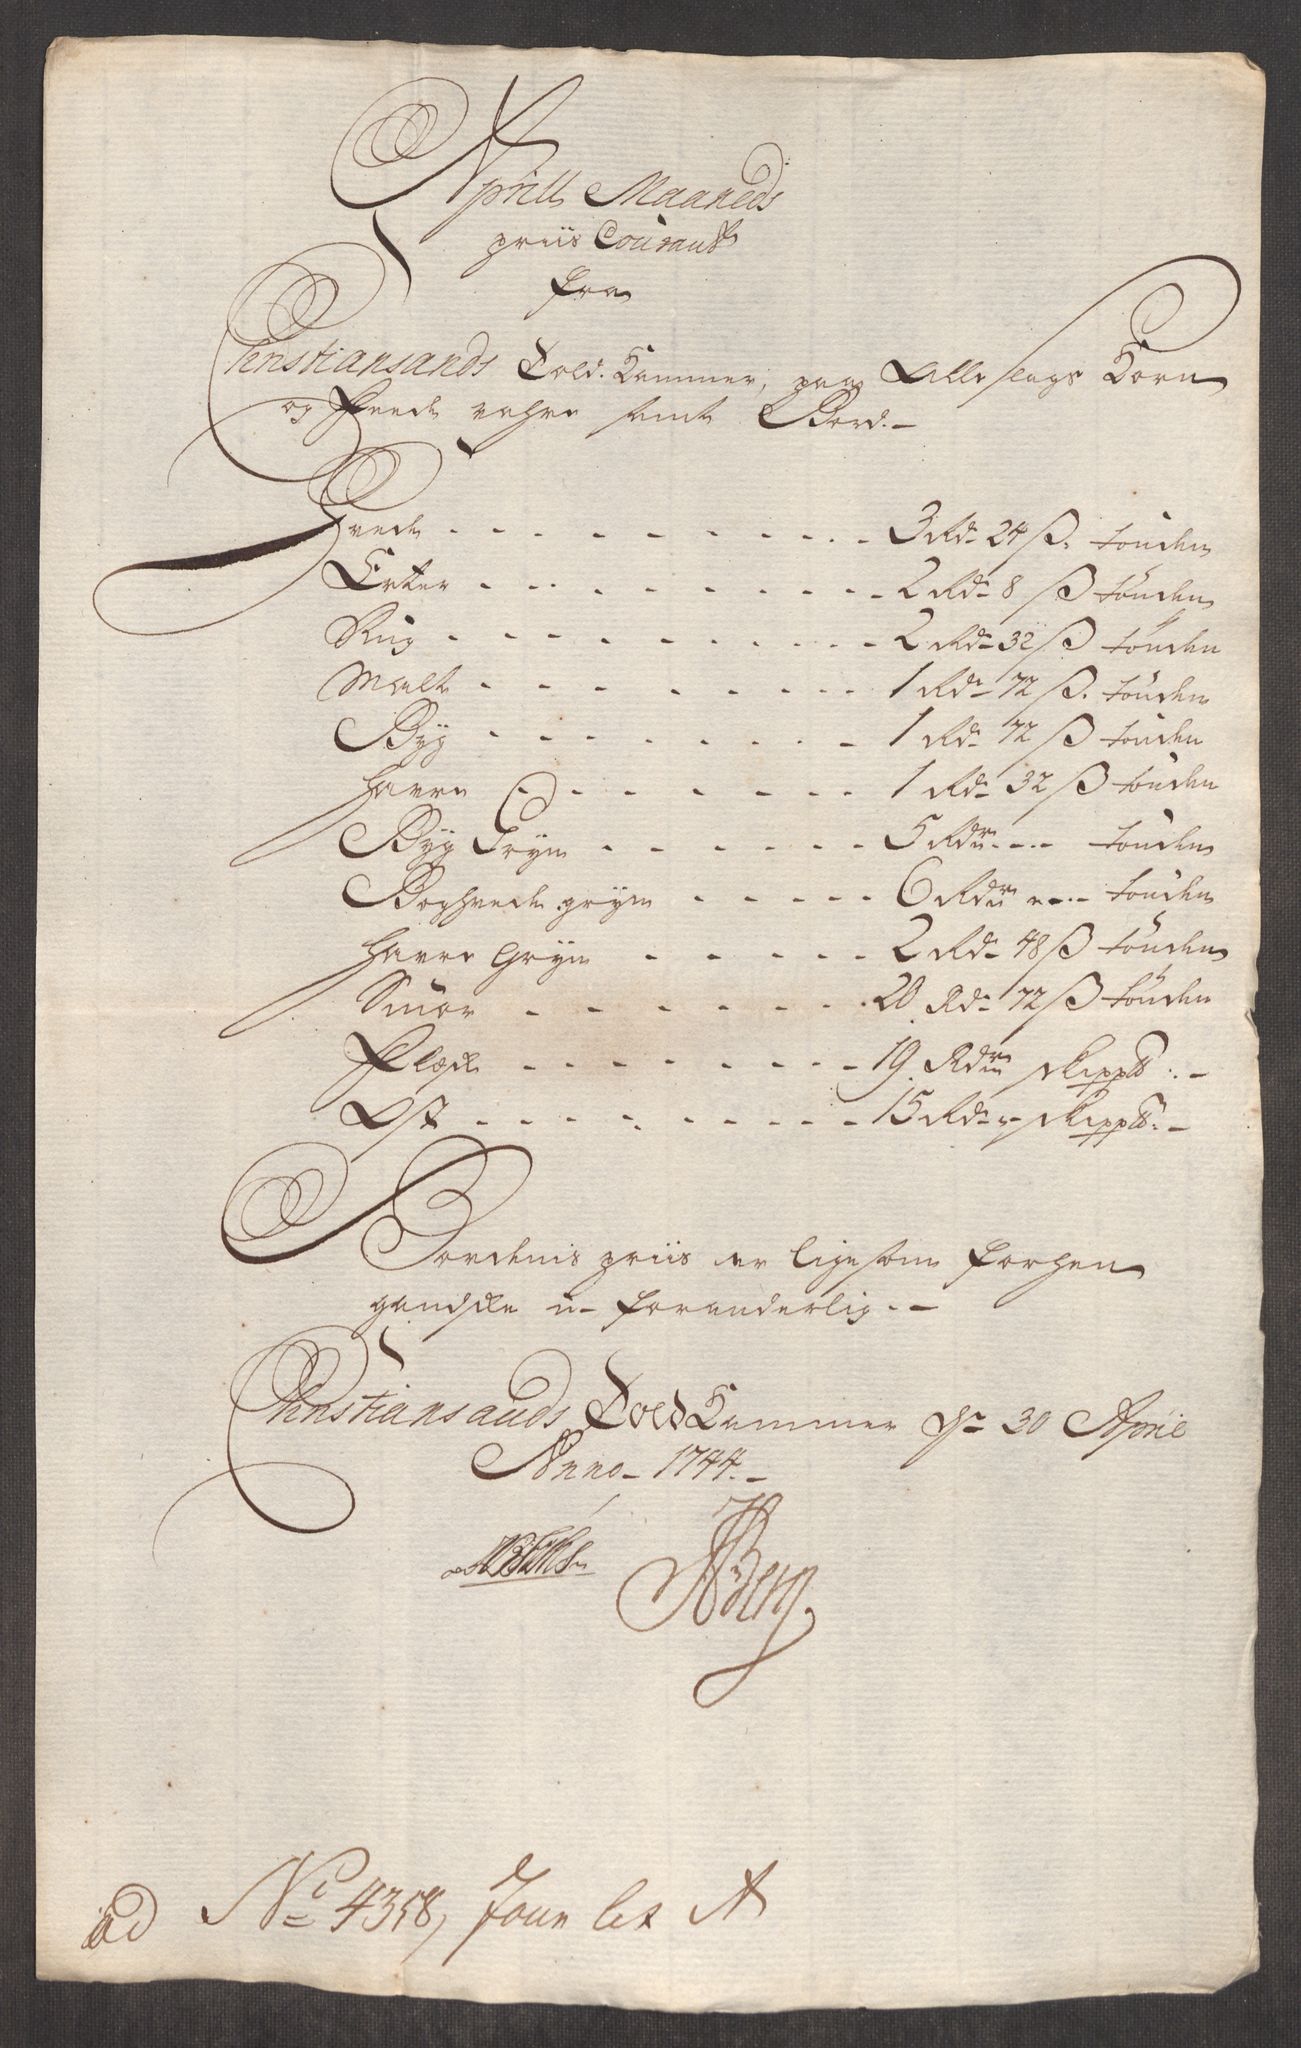 Aprill Maaneds
priis Courant
fra
Christiansands Told-Kammer, paa Alle slags Korn
og Feede vahre samt Bord.-
Hvede - - - - - - - - - - 3 Rd 24 ß. tønden
Erter - - - - - - - - - - 2 Rd 8 ß tønden
Rug - - - - - - - - - - 2 Rd 32 ß tønden
Malt - - - - - - - - - 1 Rd 72 ß. tønden
Byg - - - - - - - - - 1 Rd 72 ß tønden
Havre - - - - - - - - 1 Rd 32 ß tønden
Byg Gryn - - - - - - 5 Rdr - - - tønden
Boghvede gryn - - - - - 6 Rdr - - - tønden
Havre Gryn - - - - - 2 Rd 48 ß tønden
Smør - - - - - - - 20 Rd 72 ß tønden
Flæsk - - - - - - - - 19. Rdr skipp℔ : -
Ost - - - - - - - - - 15 Rd - skipp℔ : -
Bordenis priis er ligesom forhen
gandske u-foranderlig. -
Christiansands Told Kammer dn 30 April
Anno - 1744. -
Berg.
ad No 4358, Jour let A